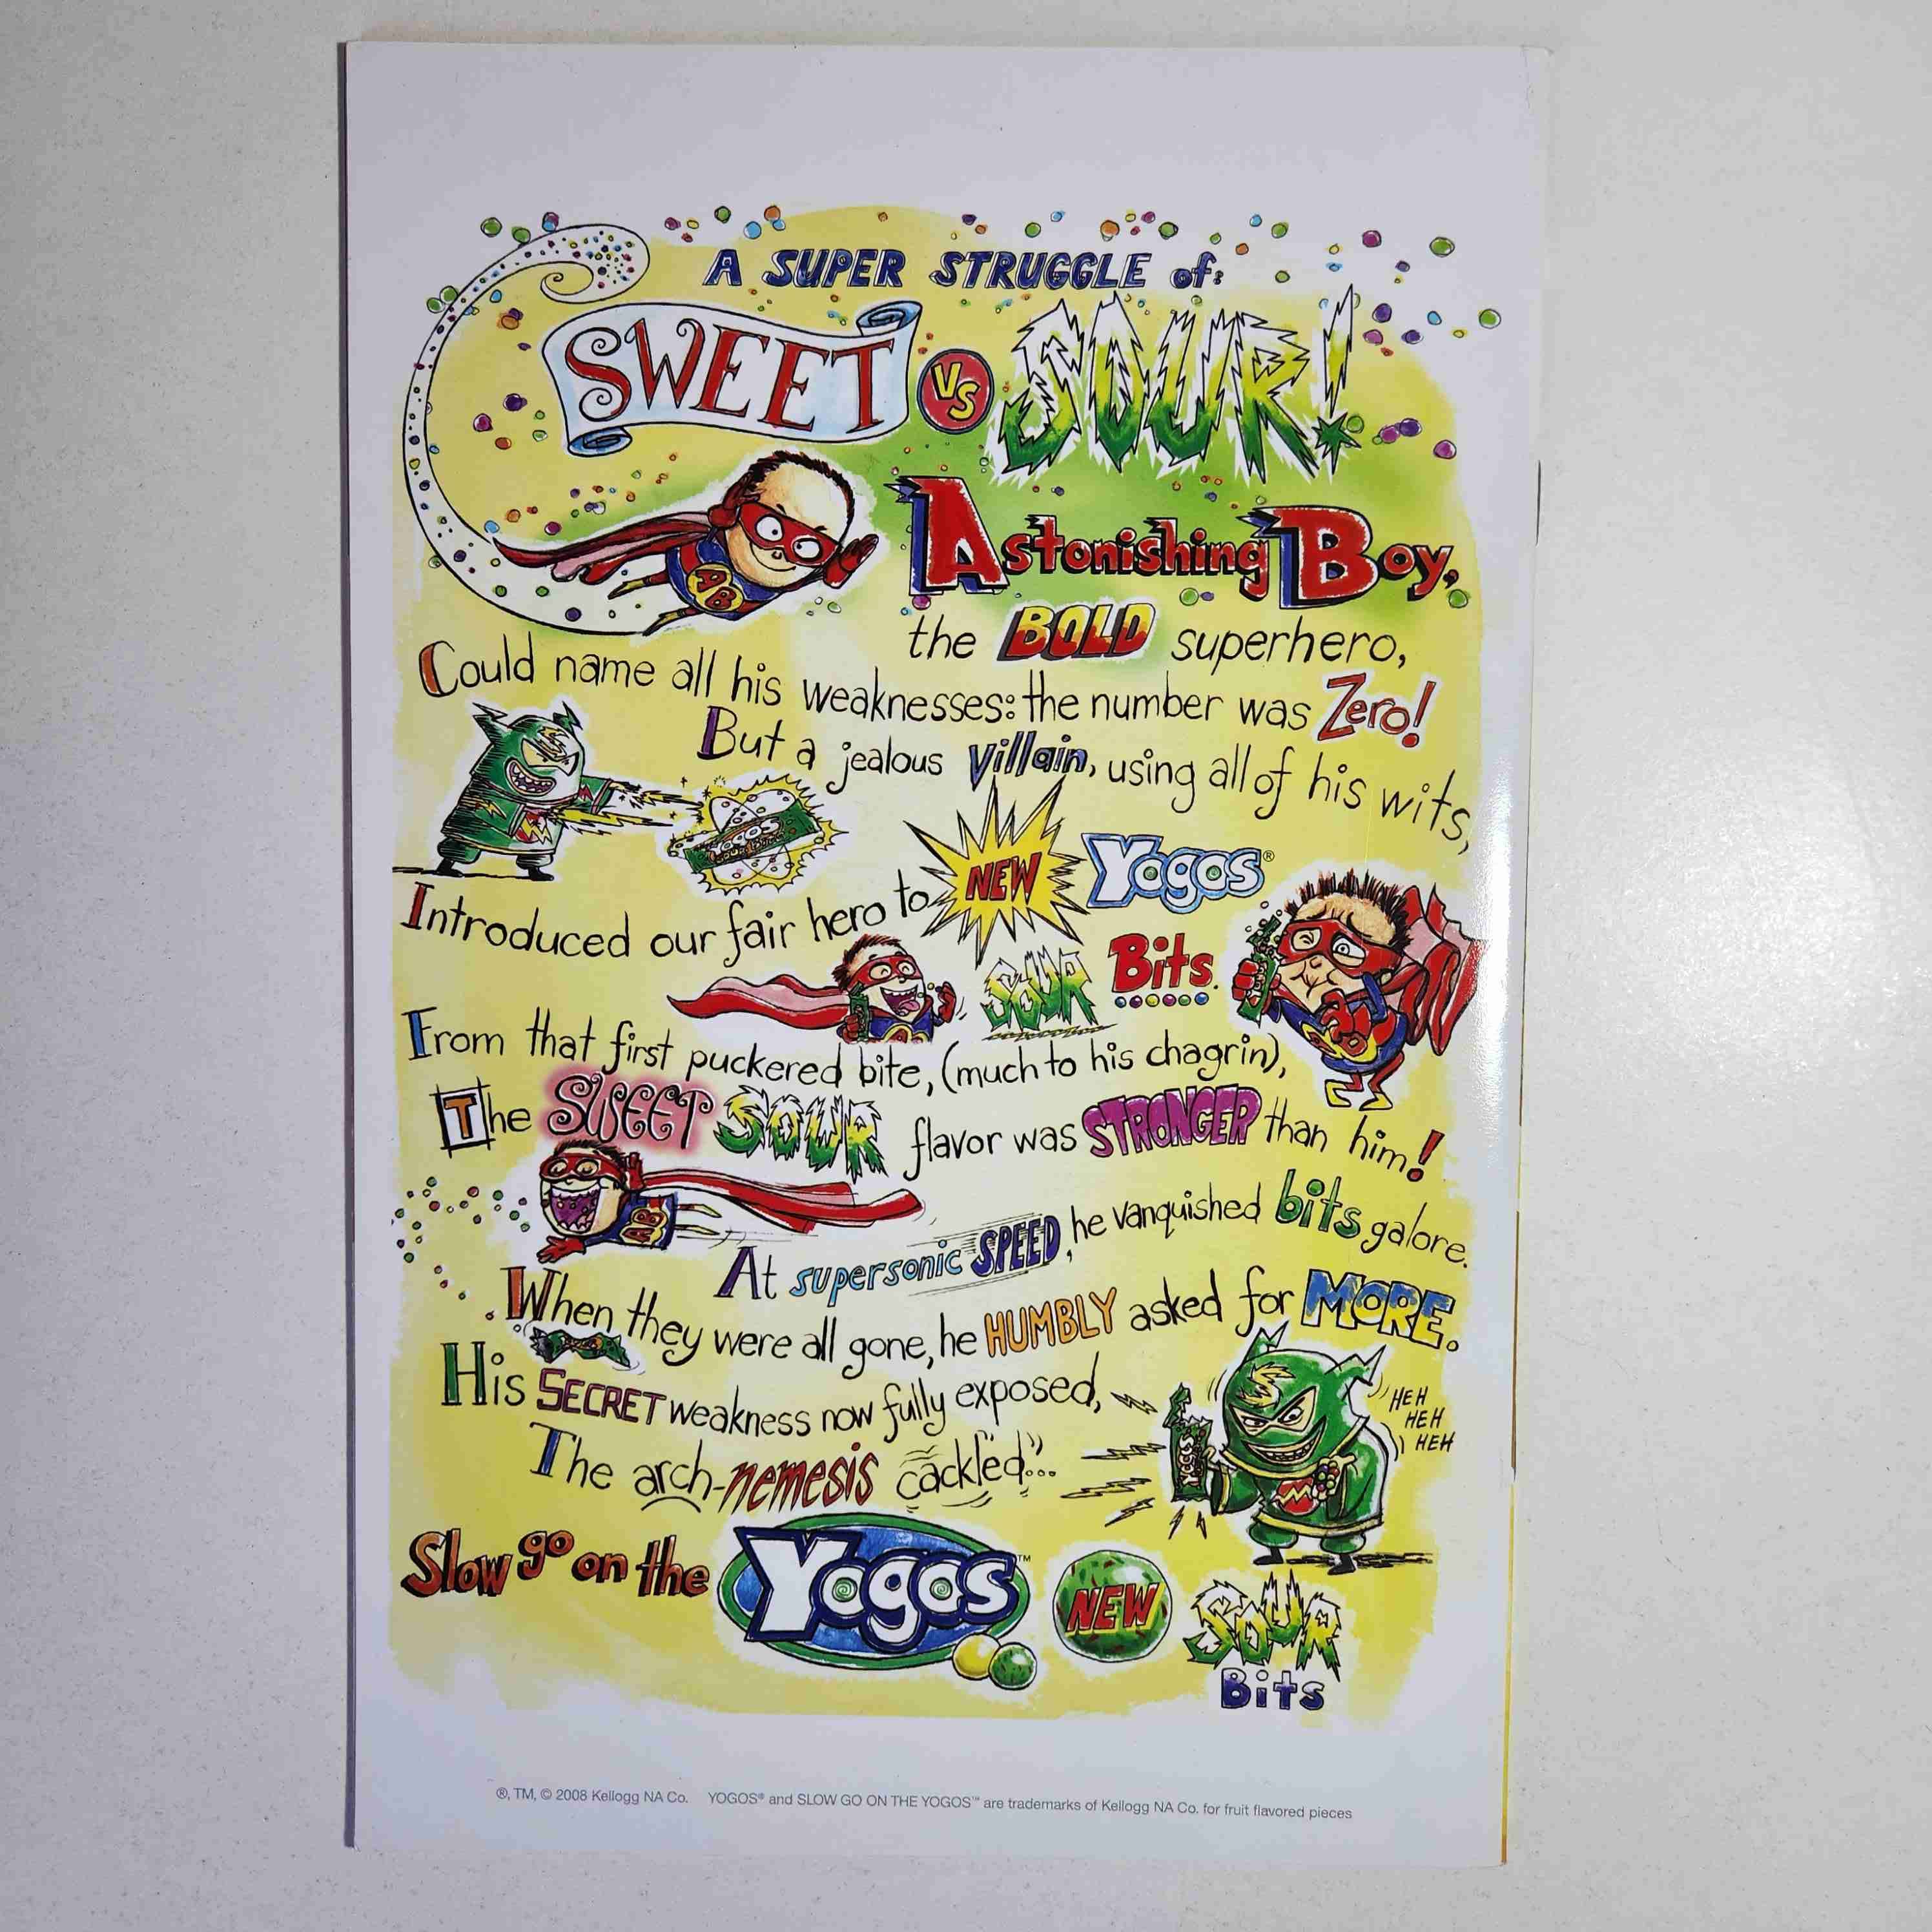 A SUPER STRUGGLE of:
SWEET VS SOUR!
Astonishing Boy,
AB
the BOLD superhero,
Could name all his weaknesses: the number was Zero!
But a jealous Villain, using all of his wits,
Introduced our fair hero to NEW Yogos®
SOUR Bits.
From that first puckered bite, (much to his chagrin),
The SWEET SOUR flavor was STRONGER than him!
AB
At supersonic SPEED, he vanquished bits galore.
When they were all gone, he HUMBLY asked for MORE.
His SECRET weakness now fully exposed,
HEH
HEH
HEH
The arch-nemesis cackled...
YOGOS
Slow go on the Yogos™ NEW SOUR
Bits
®, TM, © 2008 Kellogg NA Co. YOGOS® and SLOW GO ON THE YOGOS™ are trademarks of Kellogg NA Co. for fruit flavored pieces